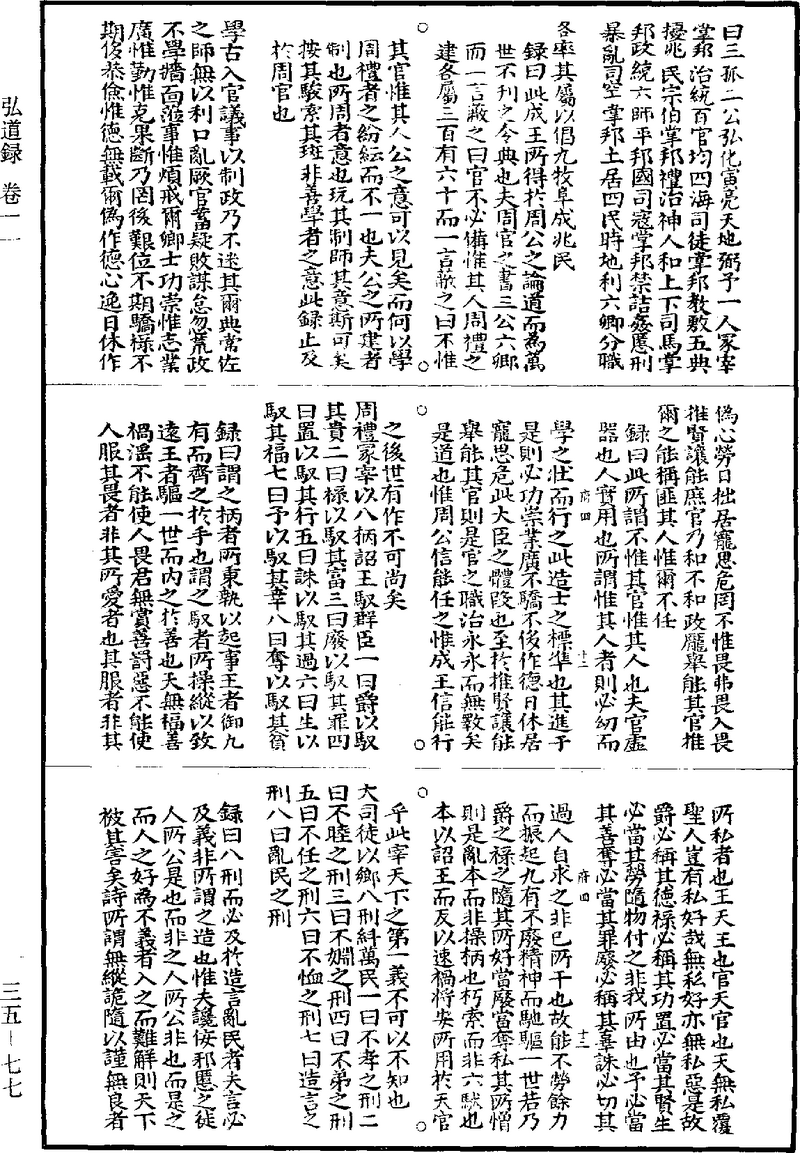 曰三孤二公弘化寅亮天地弼予一人冢宰
掌邦治統百官均四海司徒掌邦教敷五典
擾兆民宗伯掌邦禮治神人和上下司馬掌
邦政統六師平邦國司寇掌邦禁詰姦慝刑
暴亂司空掌邦土居四民時地利六卿分職
各率其屬以倡九牧阜成兆民
錄曰此成王所得於周公之論道而為萬
世不刋之令典也夫周官之書三公六卿
而一言蔽之曰官不必備惟其人周禮之
建各屬三百有六十而一言蔽之曰不惟
○ ○
其官惟其人公之意可以見矣而何以學
周禮者之紛紜而不一也夫公之所建者
制也所周者意也玩其制師其意斯可矣
按其駿索其斑非善學者之意此錄止及
於周官也
學古入官議事以制政乃不迷其爾典常佐
之師無以利口亂厥官蓄疑敗謀怠忽荒政
不學牆面蒞事惟煩戒爾卿士功崇惟志業
廣惟勤惟克果斷乃罔後艱位不期驕祿不
期侈恭儉惟德無載爾偽作德心逸日休作
偽心勞日拙居寵思危罔不惟畏弗畏入畏
推賢讓能庶官乃和不和政厖舉能其官惟
爾之能稱匪其人惟爾不任
錄曰此所謂不惟其官惟其人也夫官虛
器也人實用也所謂惟其人者則必幼而
府四 十二
學之壯而行之此造士之標準也其進于
是則必功崇業廣不驕不侈作德日休居
寵思危此大臣之體段也至於推賢讓能
舉能其官則是官之職治永永而無斁矣
是道也惟周公信能任之惟成王信能行
○ ○
之後世有作不可尚矣
周禮冢宰以八柄詔王馭群臣一曰爵以馭
其貴二曰祿以馭其富三曰廢以馭其罪四
曰置以馭其行五曰誅以馭其過六曰生以
馭其福七曰予以馭其幸八曰奪以馭其貧
錄曰謂之柄者所秉執以起事王者御九
有而齊之於手也謂之馭者所操縱以致
遠王者驅一世而內之於善也天無福善
禍淫不能使人畏君無賞善罰惡不能使
人服其畏者非其所愛者也其服者非其
所私者也王天王也官天官也天無私覆
聖人豈有私好哉無私好亦無私惡是故
爵必稱其德祿必稱其功置必當其賢生
必當其勞隨物付之非我所由也予必當
其善奪必當其罪廢必稱其辜誅必切其
府四 十三
過人自求之非已所干也故能不勞餘力
而振起九有不廢精神而馳驅一世若乃
爵之祿之隨其所好當廢當奪私其所憎
則是亂本而非操柄也朽索而非六馱也
本以詔王而反以速禍將安所用於天官
○ ○
乎此宰天下之第一義不可以不知也
大司徒以鄉八刑糾萬民一曰不孝之刑二
曰不睦之刑三曰不婣之刑四曰不弟之刑
五曰不任之刑六曰不恤之刑七曰造言之
刑八曰亂民之刑
錄曰八刑而必及於造言亂民者夫言必
及義非所謂之造也惟夫讒佞邪慝之徒
人所公是也而非之人所公非也而是之
而人之好為不義者入之而難解則天下
被其害矣詩所謂無縱詭隨以謹無良者
弘道録 卷一一
三五-七七